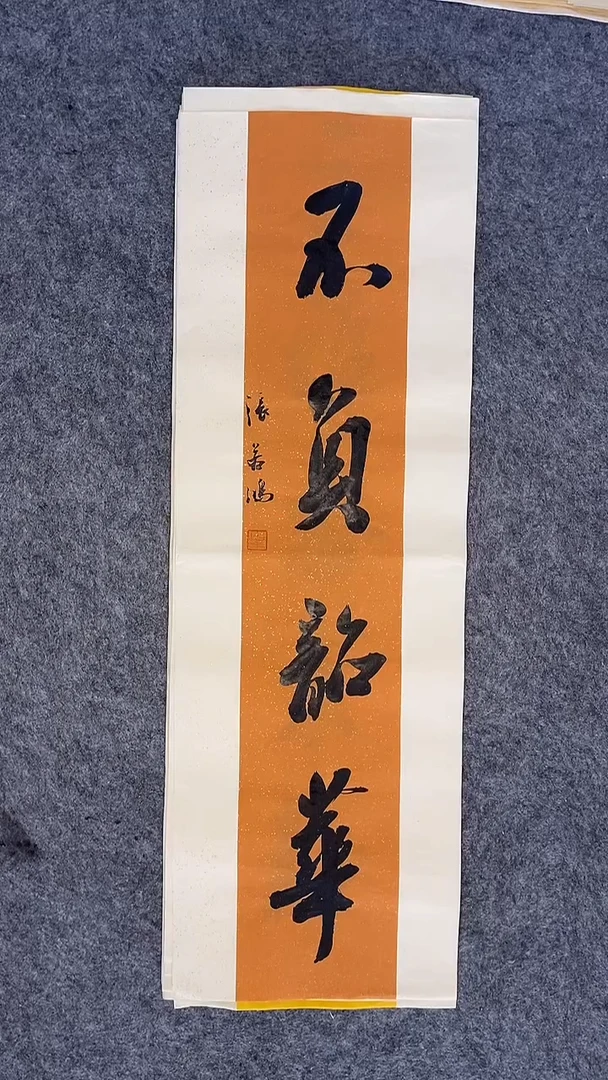 不負韶華
張若鴻